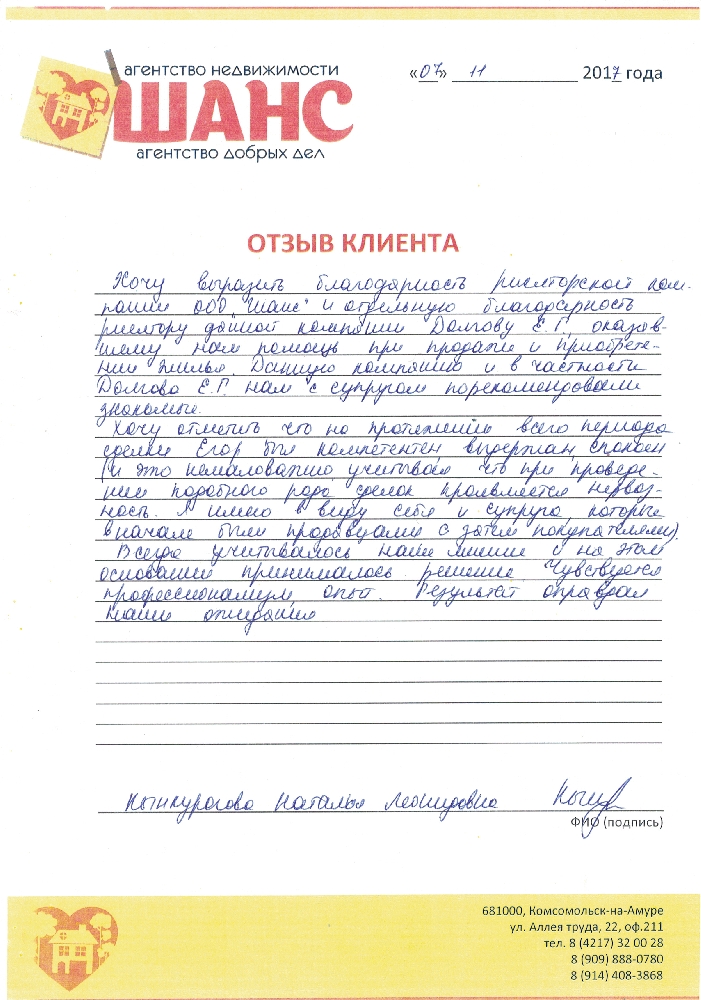 агентство недвижимости
ШАНС
агентство добрых дел
«07» 11 2017 года
ОТЗЫВ КЛИЕНТА
Хочу выразить благодарность риелторской ком-
пании ООО "Шанс" и отдельную благодарность
риелтору данной компании Долгову Е.Г., оказав-
шему нам помощь при продаже и приобрете-
нии жилья. Данную компанию и в частности
Долгова Е.Г. нам с супругом порекомендовали
знакомые.
Хочу отметить что на протяжении всего периода
сделки Егор был компетентен, выдержан, спокоен
(и это немаловажно, учитывая что при проведе-
нии подобного рода сделок проявляется нервоз-
ность. Я имею в виду себя и супруга, которые
вначале были продавцами а затем покупателями)
Всегда учитывалось наше мнение и на этом
основании принималось решение. Чувствуется
профессионализм, опыт. Результат оправдал
наши ожидания
Наталья Леонидовна
ФИО (подпись)
681000, Комсомольск-на-Амуре
ул. Аллея труда, 22, оф.211
тел. 8 (4217) 32 00 28
8 (909) 888-0780
8 (914) 408-3868